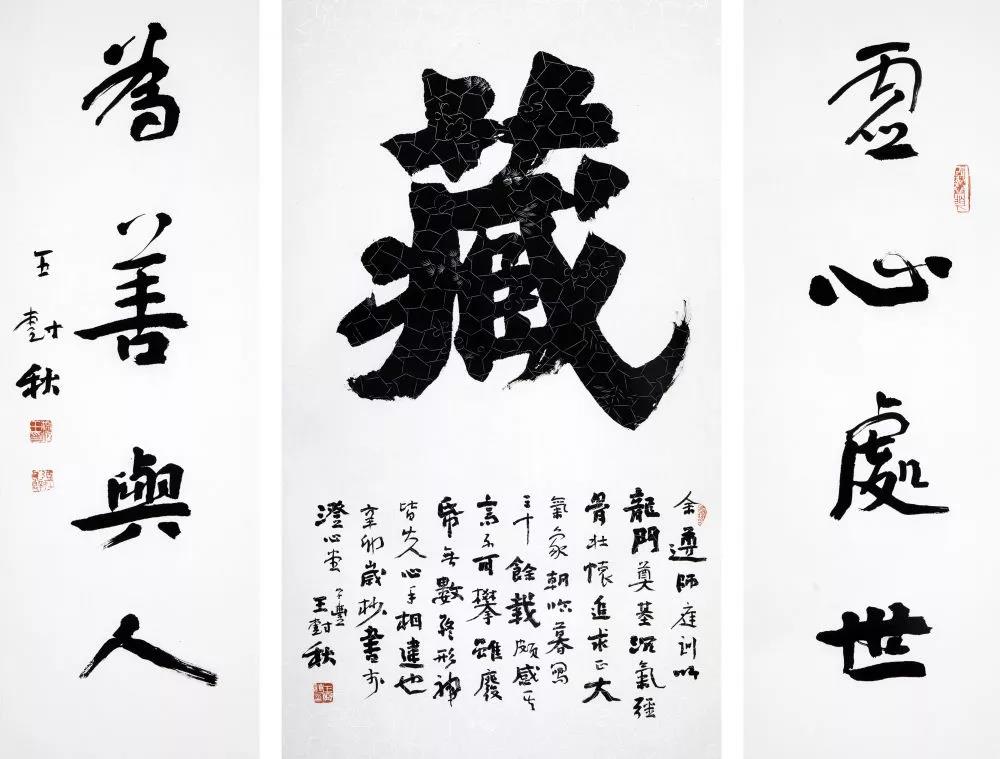 虛心處世
藏
余遵師庭訓以
龍門奠基沉氣強
骨壯懷追求正大
氣象朝吟暮寫
三十餘載頗感其
高不可攀雖廢
帋無數終形神
皆失心手相違也
辛卯歲杪書於
澄心堂 子豐 王尌秋
為善與人
王尌秋